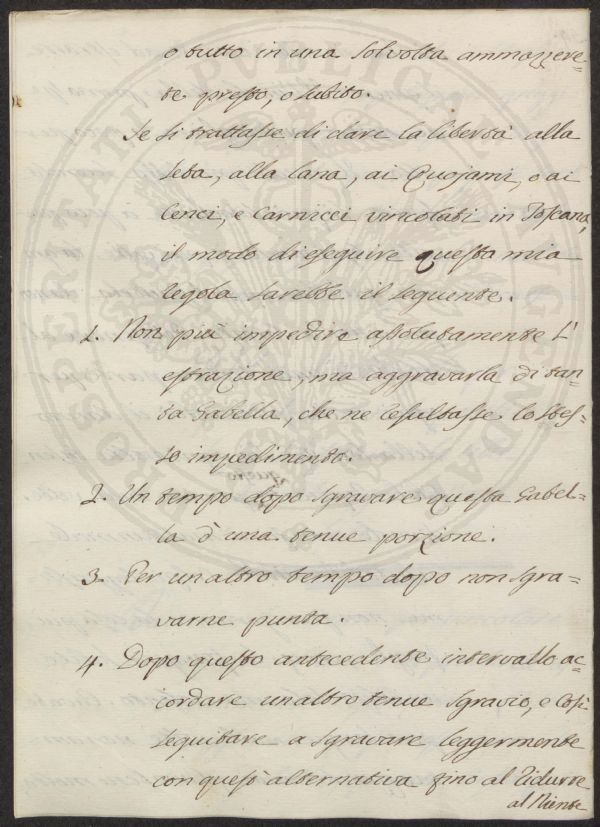 o tutto in una sol volta ammazzere=
te presto, o subito.
Se si trattasse di dare la libertà alla
Seta, alla lana, ai Quojami, o ai
Cenci, e Carnicci vincolati in Toscana,
il modo di eseguire questa mia
regola sarebbe il seguente.
1. Non più impedire assolutamente l'
estrazione, ma aggravarla di tan=
ta Gabella, che ne resultasse lo stes=
so impedimento.
2. Un tempo dopo sgravare questa Gabel=
la d'una tenue porzione.
3. Per un altro tempo dopo non sgra=
varne punta.
4. Dopo questo antecedente intervallo ac=
cordare un altro tenue sgravio, e così
seguitare a sgravare leggermente
con quest'alternativa fino al ridurre
al Niente